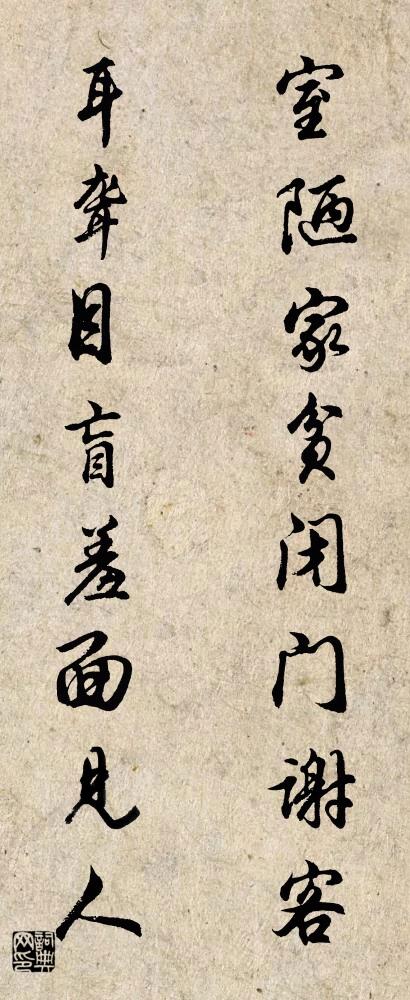 室陋家贫闭门谢客
耳聋目盲羞面见人
词典网印